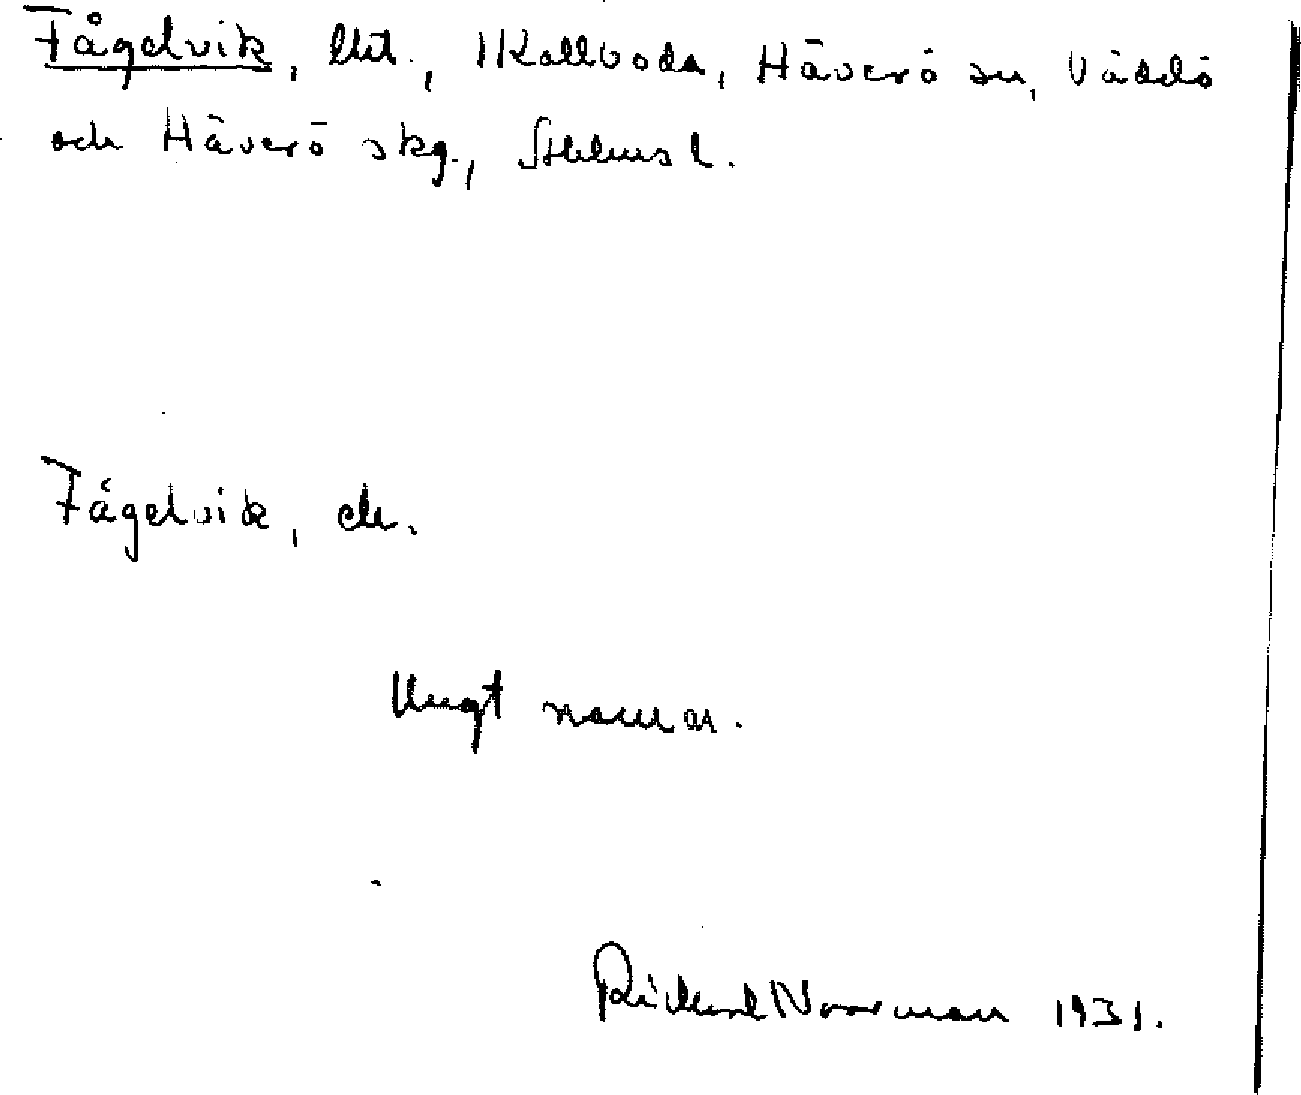 Fågelvik, lht., 1 Kallboda, Häverö sn, Väddö
och Häverö skg., Sthlms l.
Fågelvik, ds.
Ungt namn.
Rickard Norrman 1931.